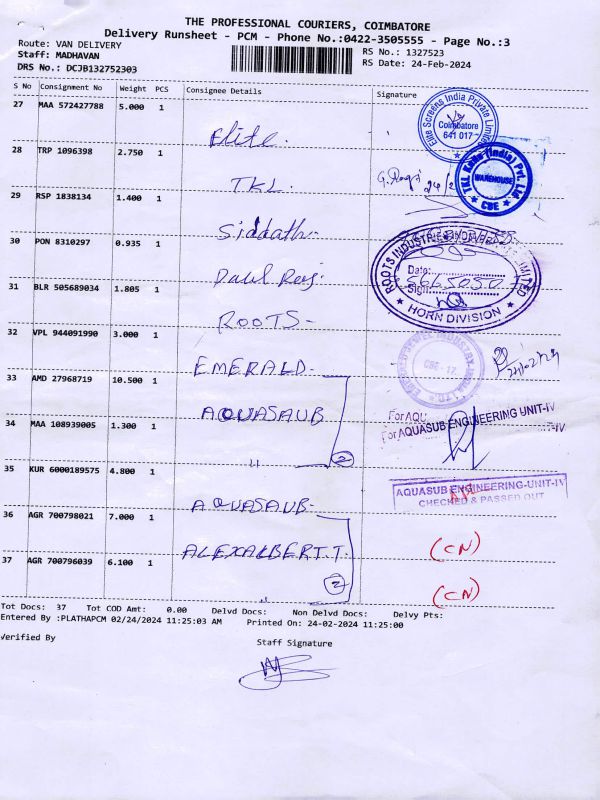 THE PROFESSIONAL COURIERS, COIMBATORE
Delivery Runsheet - PCM - Phone No.:0422-3505555 - Page No.:3
Route: VAN DELIVERY
Staff: MADHAVAN
RS No.: 1327523
DRS No.: DCJB132752303
RS Date: 24-Feb-2024
S No Consignment No Weight PCS Consignee Details Signature
27 MAA 572427788 5.000 1 Elite.
Elite Screens India Private Limited Coimbatore 641 017
28 TRP 1096398 2.750 1 TKL.
TKL Knits (India) Pvt. Ltd WAREHOUSE CBE
29 RSP 1838134 1.400 1 Siddath.
30 PON 8310297 0.935 1
ROOTS INDUSTRIES INDIA LIMITED
Date:
Sign:
HORN DIVISION
31 BLR 505689034 1.805 1 ROOTS-
32 VPL 944091990 3.000 1 EMERALD-
CBE - 17.
33 AMD 27968719 10.500 1 AQUASAUB
For AQU
For AQUASUB ENGINEERING UNIT-IV
-IV
34 MAA 108939005 1.300 1 ,, 2
35 KUR 6000189575 4.800 1 AQUASAUB-
AQUASUB ENGINEERING-UNIT-IV
CHECKED & PASSED OUT
36 AGR 700798021 7.000 1 ALEXALBERT.T. (CN)
37 AGR 700796039 6.100 1 ,, 2 (CN)
Tot Docs: 37 Tot COD Amt: 0.00 Delvd Docs: Non Delvd Docs: Delvy Pts:
Entered By :PLATHAPCM 02/24/2024 11:25:03 AM Printed On: 24-02-2024 11:25:00
Verified By
Staff Signature